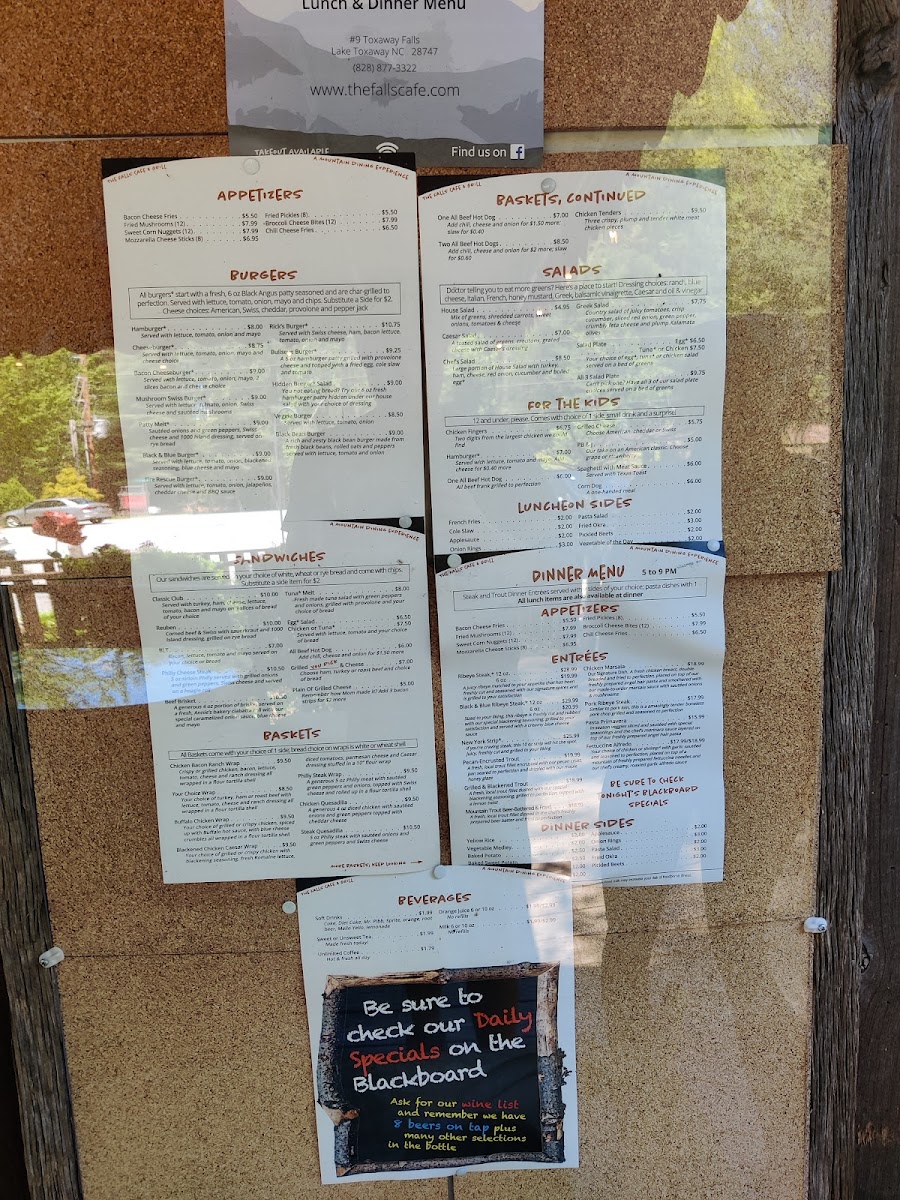 Lunch & Dinner Menu
#9 Toxaway Falls
Lake Toxaway NC 28747
(828) 877-3322
www.thefallscafe.com
TAKEOUT AVAILABLE
Find us on f
THE FALLS CAFE & GRILL
A MOUNTAIN DINING EXPERIENCE
APPETIZERS
Bacon Cheese Fries $5.50
Fried Mushrooms (12) $7.99
Sweet Corn Nuggets (12) $7.99
Mozzarella Cheese Sticks (8) $6.95
Fried Pickles (8) $5.50
Broccoli Cheese Bites (12) $7.99
Chili Cheese Fries $6.50
BURGERS
All burgers* start with a fresh, 6 oz Black Angus patty seasoned and are char-grilled to
perfection. Served with lettuce, tomato, onion, mayo and chips. Substitute a Side for $2.
Cheese choices: American, Swiss, cheddar, provolone and pepper jack
Hamburger* $8.00
Served with lettuce, tomato, onion and mayo
Cheeseburger* $8.75
Served with lettuce, tomato, onion, mayo and
cheese choice
Bacon Cheeseburger* $9.00
Served with lettuce, tomato, onion, mayo, 2
slices bacon and cheese choice
Mushroom Swiss Burger* $9.00
Served with lettuce, tomato, onion, Swiss
cheese and sautéed mushrooms
Patty Melt* $9.00
Sautéed onions and green peppers, Swiss
cheese and 1000 Island dressing, served on
rye bread
Black & Blue Burger* $9.00
Served with lettuce, tomato, onion, blackened
seasoning, blue cheese and mayo
Fire Rescue Burger* $9.00
Served with lettuce, tomato, onion, jalapeños,
cheddar cheese and BBQ sauce
Rick's Burger* $10.75
Served with Swiss cheese, ham, bacon, lettuce,
tomato, onion and mayo
Burger* $9.25
A 6 oz hamburger patty grilled with provolone
cheese and topped with a fried egg, cole slaw
and tomato
Hidden Burger Salad $9.00
You not eating bread? Try our 6 oz fresh
hamburger patty hidden under our house
salad with your choice of dressing
Veggie Burger $8.50
Served with lettuce, tomato, onion
Black Bean Burger $9.00
A rich and zesty black bean burger made from
fresh black beans, rolled oats and peppers
served with lettuce, tomato and onion
THE FALLS CAFE & GRILL
A MOUNTAIN DINING EXPERIENCE
BASKETS, CONTINUED
One All Beef Hot Dog $7.00
Add chili, cheese and onion for $1.50 more;
slaw for $0.40
Two All Beef Hot Dogs $8.50
Add chili, cheese and onion for $2 more; slaw
for $0.60
Chicken Tenders $9.50
Three crispy, plump and tender white meat
chicken pieces
SALADS
Doctor telling you to eat more greens? Here's a place to start! Dressing choices: ranch, blue
cheese, Italian, French, honey mustard, Greek, balsamic vinaigrette, Caesar and oil & vinegar
House Salad $4.95
Mix of greens, shredded carrots,
onions, tomatoes & cheese
Caesar Salad
A tossed salad of greens, croutons, grated
cheese with Caesar dressing
Chef's Salad $8.50
Larger portion of House Salad with turkey,
ham, cheese, red onion, cucumber and boiled
egg*
Greek Salad $7.75
Country salad of juicy tomatoes, crisp
cucumber, sliced red onion, green pepper,
crumbly feta cheese and plump Kalamata
olives
Salad Plate Egg* $6.50
Tuna* or Chicken $7.50
Your choice of egg*, tuna* or chicken salad
served on a bed of greens
All 3 Salad Plate $9.75
Can't pick one? Have all 3 of our salad plate
choices served on a bed of greens
FOR THE KIDS
12 and under, please. Comes with choice of 1 side, small drink and a surprise!
Chicken Fingers $6.75
Two digits from the largest chicken we could
find
Hamburger* $7.00
Served with lettuce, tomato and mayo. Add
cheese for $0.40 more
One All Beef Hot Dog
All beef frank grilled to perfection
Grilled Cheese $5.75
Choose American, cheddar or Swiss
PB & J $5.00
Our take on an American classic. Choose
grape or strawberry
Spaghetti with Meat Sauce $6.00
Served with Texas Toast
Corn Dog $6.00
A one-handed meal
LUNCHEON SIDES
French Fries $2.00
Cole Slaw $2.00
Applesauce $2.00
Onion Rings $3.00
Pasta Salad $2.00
Fried Okra $3.00
Pickled Beets $2.00
Vegetable of the Day $2.00
A MOUNTAIN DINING EXPERIENCE
SANDWICHES
Our sandwiches are served on your choice of white, wheat or rye bread and come with chips.
Substitute a side item for $2
Classic Club $10.00
Served with turkey, ham, cheese, lettuce,
tomato, bacon and mayo on 3 slices of bread
of your choice
Reuben $10.00
Corned beef & Swiss with sauerkraut and 1000
Island dressing, grilled on rye bread
BLT $7.00
Bacon, lettuce, tomato and mayo served on
your choice of bread
Philly Cheese Steak $10.50
Beef Brisket
A generous 4 oz portion of brisket served on
a fresh, Annie's bakery ciabatta roll with our
special caramelized onion sauce, blue cheese
and mayo
Tuna* Melt $8.00
Fresh made tuna salad with green peppers
and onions, grilled with provolone and your
choice of bread
Egg* Salad $6.50
Chicken or Tuna* $7.50
Served with lettuce, tomato and your choice
of bread
All Beef Hot Dog $6.00
Add chili, cheese and onion for $1.50 more
Grilled YOU PICK & Cheese $7.00
Choose ham, turkey or roast beef and choice
of bread
Plain Ol' Grilled Cheese $5.00
Remember how Mom made it? Add 3 bacon
strips for $2 more
BASKETS
All Baskets come with your choice of 1 side; bread choice on wraps is white or wheat shell
Chicken Bacon Ranch Wrap $9.50
Crispy or grilled chicken, bacon, lettuce,
tomato, cheese and ranch dressing all
wrapped in a flour tortilla shell
Your Choice Wrap $8.50
Your choice of turkey, ham or roast beef with
lettuce, tomato, cheese and ranch dressing all
wrapped in a flour tortilla shell
Buffalo Chicken Wrap $9.50
Your choice of grilled or crispy chicken, spiced
up with Buffalo hot sauce, with blue cheese
crumbles all wrapped in a flour tortilla shell
Blackened Chicken Caesar Wrap $9.50
Your choice of grilled or crispy chicken with
blackening seasoning, fresh Romaine lettuce,
diced tomatoes, parmesan cheese and Caesar
dressing stuffed in a 10" flour wrap
Philly Steak Wrap $9.50
A generous 5 oz Philly meat with sautéed
green peppers and onions, topped with Swiss
cheese and rolled up in a flour tortilla shell
Chicken Quesadilla $9.50
A generous 4 oz diced chicken with sautéed
onions and green peppers topped with
cheddar cheese
Steak Quesadilla $10.50
5 oz Philly steak with sautéed onions and
green peppers and Swiss cheese
MORE BASKETS, KEEP LOOKING →
THE FALLS CAFE & GRILL
A MOUNTAIN DINING EXPERIENCE
DINNER MENU 5 to 9 PM
Steak and Trout Dinner Entrées served with 2 sides of your choice; pasta dishes with 1
All lunch items are also available at dinner
APPETIZERS
Bacon Cheese Fries $5.50
Fried Mushrooms (12) $7.99
Sweet Corn Nuggets (12) $7.99
Mozzarella Cheese Sticks (8) $6.95
Fried Pickles (8) $5.50
Broccoli Cheese Bites (12) $7.99
Chili Cheese Fries $6.50
ENTRÉES
Ribeye Steak* 12 oz. $28.99
6 oz $19.99
Black & Blue Ribeye Steak* 12 oz $29.99
6 oz $20.99
New York Strip* $25.99
Pecan-Encrusted Trout $19.99
Grilled & Blackened Trout
Mountain Trout Beer-Battered & Fried
Chicken Marsala $18.99
Pork Ribeye Steak $17.99
Pasta Primavera $15.99
Fettuccine Alfredo $17.99/$18.99
BE SURE TO CHECK
TONIGHT'S BLACKBOARD
SPECIALS
DINNER SIDES
Yellow Rice
Vegetable Medley
Baked Potato
Baked Sweet Potato
Applesauce $2.00
Onion Rings $3.00
Pasta Salad $2.00
Fried Okra $3.00
Pickled Beets $2.00
THE FALLS CAFE & GRILL
A MOUNTAIN DINING EXPERIENCE
BEVERAGES
Soft Drinks $1.99
Coke, Diet Coke, Mr. Pibb, Sprite, orange, root
beer, Mello Yello, lemonade
Sweet or Unsweet Tea $1.99
Made fresh today!
Unlimited Coffee $1.79
Hot & fresh all day
Orange Juice 6 or 10 oz
No refills
Milk 6 or 10 oz
No refills
Be sure to
check our Daily
Specials on the
Blackboard
Ask for our wine list
and remember we have
8 beers on tap plus
many other selections
in the bottle